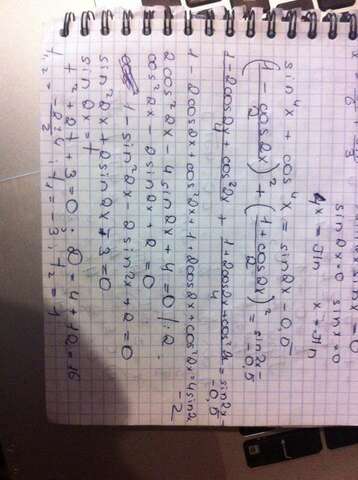 sin2x=0 sinx=0
4x = πn x = πn
sin⁴x + cos⁴x = sin2x - 0,5
((1 - cos2x)/2)² + ((1 + cos2x)/2)² = sin2x - - 0,5
(1 - 2cos2x + cos²2x)/4 + (1 + 2cos2x + cos²2x)/4 = sin2x - - 0,5
1 - 2cos2x + cos²2x + 1 + 2cos2x + cos²2x = 4sin2x - 2
2cos²2x - 4sin2x + 4 = 0 /:2
cos²2x - 2sin2x + 2 = 0
1 - sin²2x - 2sin2x + 2 = 0
sin²2x + 2sin2x - 3 = 0
sin2x = t
t² + 2t + 3 = 0 ; D = 4 + 12 = 16
t₁,₂ = (-2±4)/2 ; t₁ = -3 ; t₂ = 1